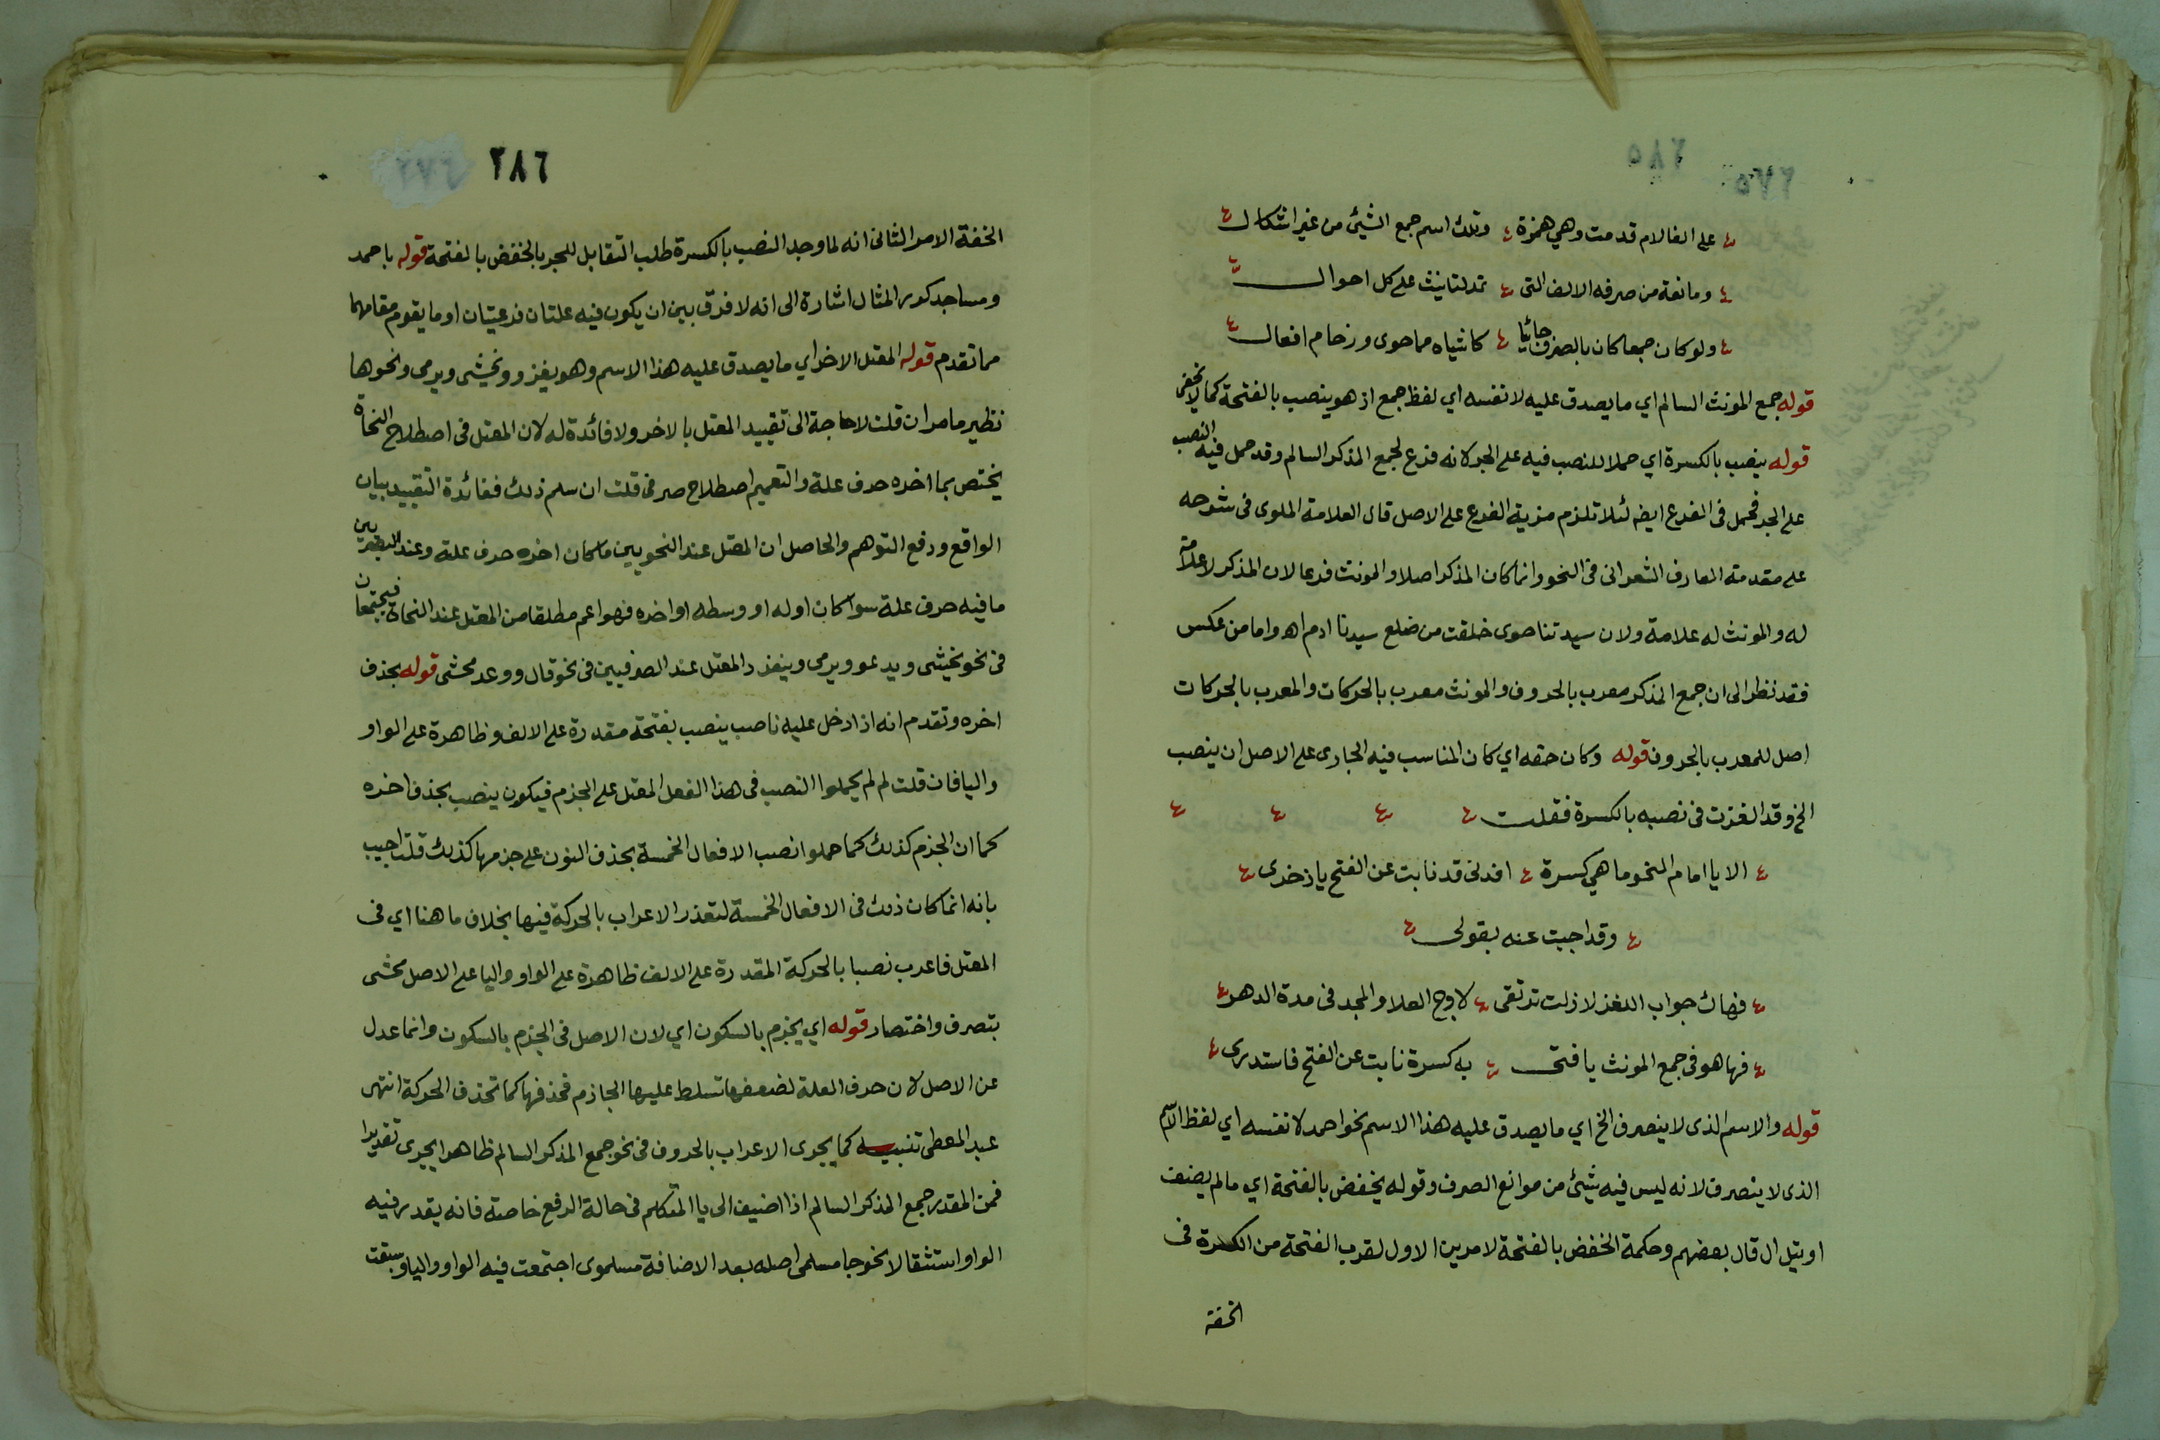 ٢٨٥
٢٧٥
على الفا لام قدمت وهي همزة وتلك اسم جمع الشيئ من غير اشكال
ومانعة من صرفه الالف التي تدلتانيث على كل احوال
ولوكان جمعا كان بالصرف جائيا كاشياه مما حوى ورزحام افعال
قوله جمع المونث السالم اي ما يصدق عليه لا نفسه اي لفظ جمع اذ هو ينصب بالفتحة كما لا يخفى
قوله ينصب بالكسرة اي حملا للنصب فيه على الجر لانه فرع لجمع المذكر السالم وقد حمل فيه النصب
على الجر فحمل في الفرع ايضه لئلا تلزم مزية الفرع على الاصل قال العلامة الملوى في شرحه
على مقدمة العارف الشعرانى في النحو وانما كان المذكر اصلا والمونث فرعا لان المذكر لا علامة
له والمونث له علامة ولان سيدتنا حوى خلقت من ضلع سيدنا ادم اهـ واما من عكس
فقد نظر الى ان جمع المذكر معرب بالحروف والمونث معرب بالحركات والمعرب بالحركات
اصل للمعرب بالحروف قوله وكان حقه اي كان المناسب فيه الجارى على الاصل ان ينصب
الخ وقد الغزت في نصبه بالكسرة فقلت
الا يا امام النحو ما هي كسرة افدنى قد نابت عن الفتح يا ذخرى
وقد اجبت عنه بقولى
فهاك جواب اللغز لا زلت ترتقى لاوج العلا والمجد في مدة الدهر
فها هو في جمع المونث يا فتى به كسرة نابت عن الفتح فاستدرى
قوله والاسم الذى لا ينصرف الخ اي ما يصدق عليه هذا الاسم نحو احمد لا نفسه اي لفظ الاسم
الذى لا ينصرف لانه ليس فيه شيئ من موانع الصرف وقوله يخفض بالفتحة اي ما لم يضف
او يتل ال قال بعضهم وحكمة الخفض بالفتحة لامرين الاول لقرب الفتحة من الكسرة في
الخفة
٢٨٦
٢٧٦
الخفة الامر الثانى انه لما وجد النصب بالكسرة طلب التقابل للجر بالخفض بالفتحة قوله باحمد
ومساجد كور المثال اشارة الى انه لا فرق بين ان يكون فيه علتان فرعيتان او ما يقوم مقامهما
مما تقدم قوله المعتل الاخر اي ما يصدق عليه هذا الاسم وهو يغزو ويخشى ويرمى ونحوها
نظير ما مر ان قلت لا حاجة الى تقييد المعتل بالاخر ولا فائدة له لان المعتل في اصطلاح النحاة
يختص بما اخره حرف علة والتعميم اصطلاح صرفى قلت ان سلم ذلك ففائدة التقييد بيان
الواقع ودفع التوهم والحاصل ان المعتل عند النحويين ما كان اخره حرف علة وعند
ما فيه حرف علة سواء كان اوله او وسطه او اخره فهو اعم مطلقا من المعتل عند النحاة فيجتمعان
في نحو يخشى ويدعو ويرمى وينفرد المعتل عند الصرفيين في نحو قال ووعد محشى قوله بحذف
اخره وتقدم انه اذا دخل عليه ناصب ينصب بفتحة مقدرة على الالف وظاهرة على الواو
واليا فان قلت لم لم يحملوا النصب في هذا الفعل المعتل على الجزم فيكون ينصب بحذف اخره
كما ان الجزم كذلك كما حملوا نصب الافعال الخمسة بحذف النون على جزمها كذلك قلت اجيب
بانه انما كان ذلك في الافعال الخمسة لتعذر الاعراب بالحركة فيها بخلاف ما هنا اي في
المعتل فاعرب نصبا بالحركة المقدرة على الالف ظاهرة على الواو واليا على الاصل محشى
بتصرف واختصار قوله اي يجزم بالسكون اي لان الاصل في الجزم بالسكون وانما عدل
عن الاصل لان حرف العلة لضعفها تسلط عليها الجازم فحذفها كما تحذف الحركة انتهى
عبد المعطى تنبيه كما يجرى الاعراب بالحروف في نحو جمع المذكر السالم ظاهرا يجرى تقديرا
فمن المقدر جمع المذكر السالم اذا اضيف الى يا المتكلم في حالة الرفع خاصة فانه يقدر فيه
الواو استثقالا نحو جا مسلمى اصله بعد الاضافة مسلموى اجتمعت فيه الواو واليا وسبقت